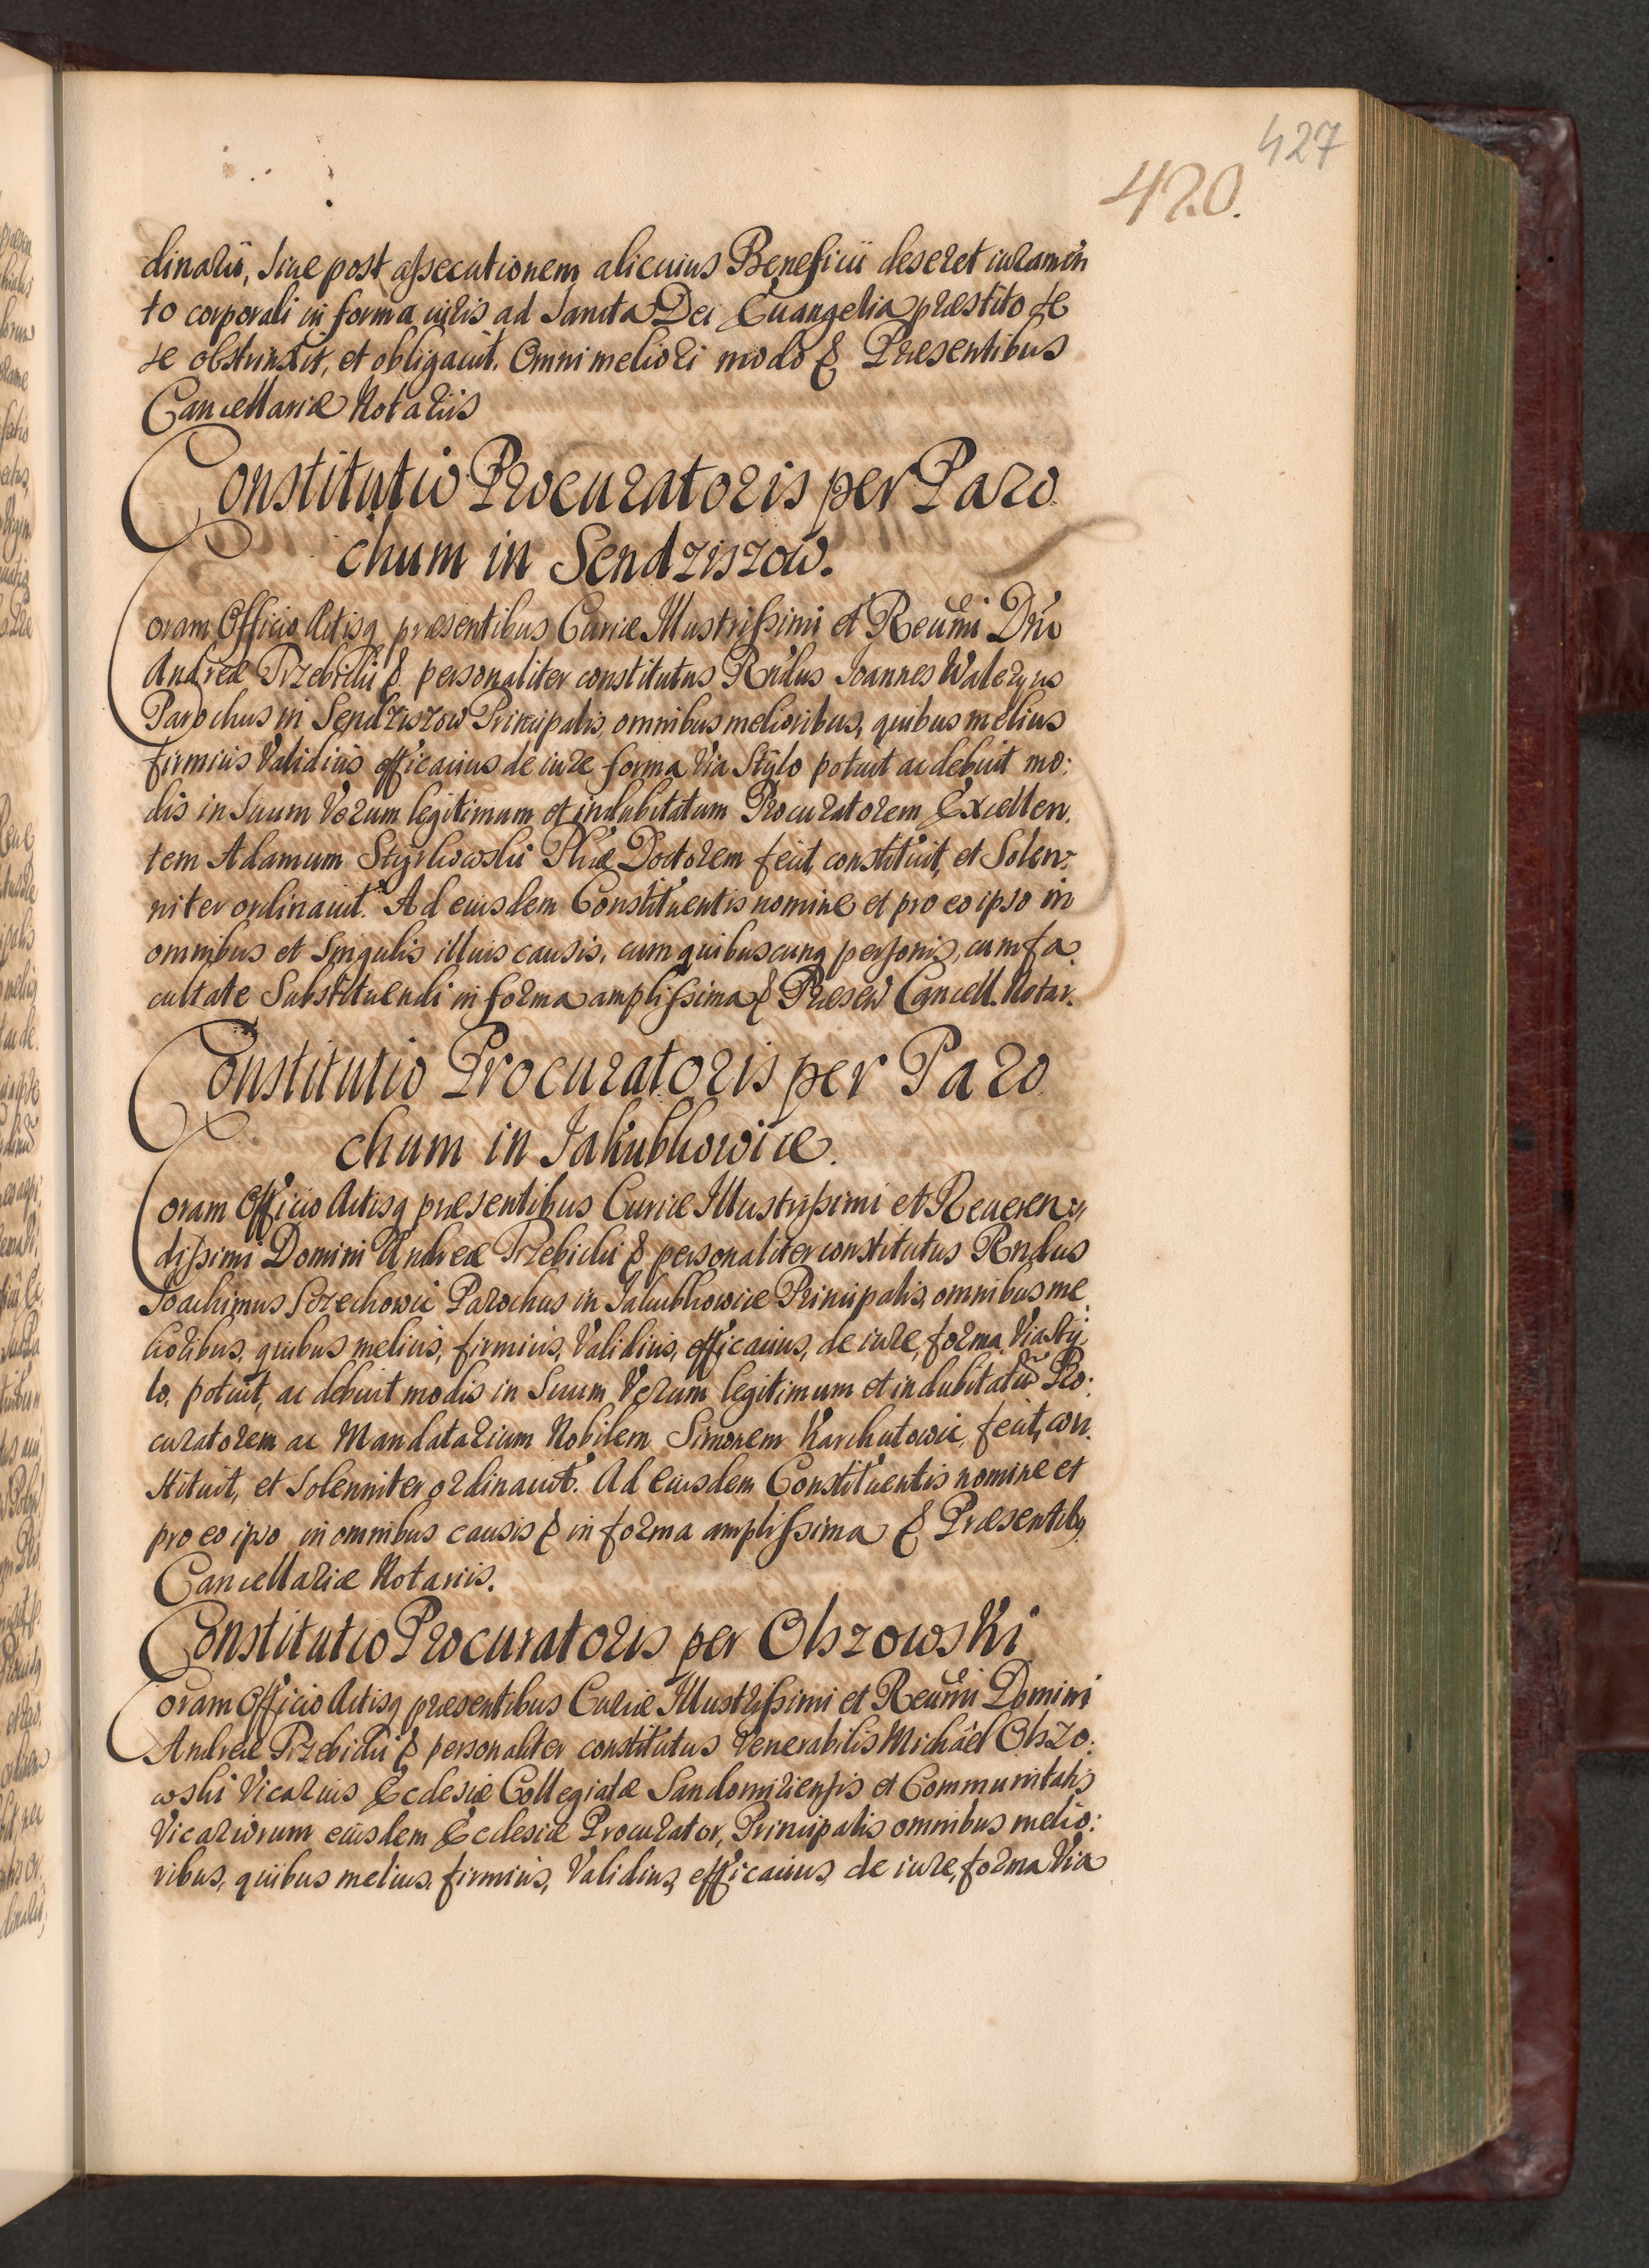 427
420.
dinarii, siue post assecutionem alicuius Beneficii deseret iuramen
to corporali in forma iuris ad Sancta Dei Euangelia præstito se
se obstrinxit, et obligauit. Omni meliori modo & Præsentibus
Cancellariæ Notariis
Constitutio Procuratoris per Paro
chum in Sendziszow.
Coram Officio Actisq præsentibus Curiæ Illustrissimi et Reumi Dni
Andreæ Trzebicki & personaliter constitutus Rndus Joannes Walezyus
Parochus in Sendziszow Principalis, omnibus melioribus, quibus melius
firmius Validius efficacius de iure forma Via Stylo potuit ac debuit mo:
dis in Suum Verum legitimum et indubitatum Procuratorem Excellen.
tem Adamum Styrkowski Phiæ Doctorem fecit, constituit, et Solen:
niter ordinauit. Ad eiusdem Constituentis nomine et pro eo ipso in
omnibus et Singulis illius causis, cum quibuscunq personis, cum fa
cultate Substituendi in forma amplissima & Præsen Cancell. Notar.
Constitutio Procuratoris per Paro
chum in Jakubkowice.
Coram Officio Actisq præsentibus Curiæ Illustrissimi et Reueren
dissimi Domini Andreæ Trzebicki & personaliter constitutus Rndus
Joachimus Parochus in Jakubkowice Principalis, omnibus me
lioribus, quibus melius, firmius, Validius, efficacius, de iure, forma, Via Sty
lo, potuit, ac debuit modis in Suum Verum legitimum et indubitatu Pro:
curatorem ac Mandatarium Nobilem Simonem Karchutowic, fecit, con
stituit, et Solenniter ordinauit. Ad Eiusdem Constituentis nomine et
pro eo ipso in omnibus causis & in forma amplissima & Præsentibq
Cancellariæ Notariis.
Constitutio Procuratoris per Olszowski
Coram Officio Actisq præsentibus Curiæ Illustrissimi et Reumi Domini
Andreæ Trzebicki & personaliter constitutus Venerabilis Michael Olszo:
wski Vicarius Ecclesiæ Collegiatæ Sandomiriensis et Communitatis
Vicariorum eiusdem Ecclesiæ Procurator, Principalis omnibus melio:
ribus, quibus melius, firmius, Validius, efficacius, de iure, forma Via